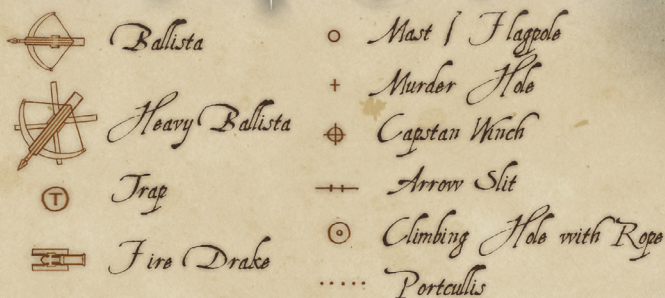 Ballista
Heavy Ballista
T Trap
Fire Drake
Mast / Flagpole
Murder Hole
Capstan Winch
Arrow Slit
Climbing Hole with Rope
Portcullis